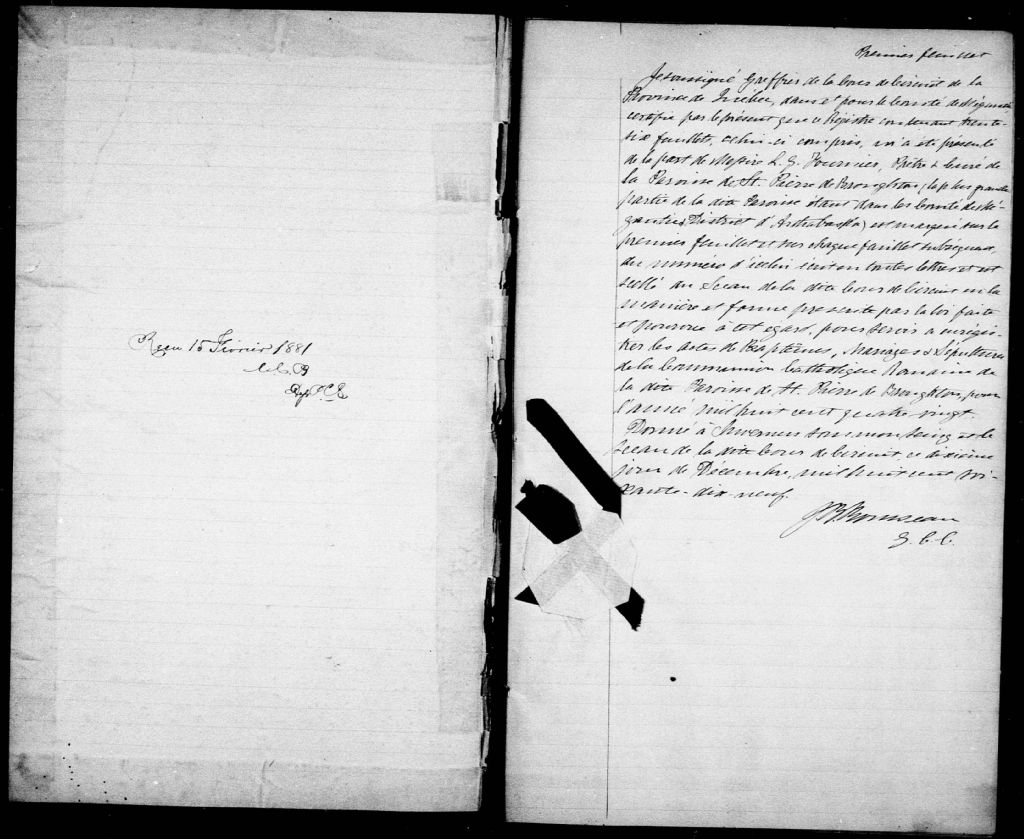 Reçu 15 Février 1881
Dep. P.C.S.
Premier feuillet
Je soussigné Greffier de la Cour de Circuit de la
Province de Québec, dans et pour le Comté de Mégantic
certifie par le présent que ce Régistre contenant trente-
six feuillets, celui-ci compris, m'a été présenté
de la part de Messire L. G. Fournier, Prêtre & Curé de
la Paroisse de St. Pierre de Broughton (la plus grande
partie de la dite Paroisse étant dans le Comté de Mé-
gantic District d'Arthabaska) est marqué sur le
premier feuillet et sur chaque feuillet subséquent,
du numéro d'icelui écrit en toutes lettres et est
scellé du Sceau de la dite Cour de Circuit en la
manière et forme prescrite par la loi faite
et pourvue à cet egard, pour servir à enrégis-
trer les actes de Baptêmes, Mariages & Sépultures
de la Communion Catholique Romaine de
la dite Paroisse de St. Pierre de Broughton, pour
l'année mil huit cent quatre vingt.
Donné à Inverness sous mon seing et le
Sceau de la dite Cour de Circuit ce dixième
jour de Décembre, mil huit cent soi-
xante-dix-neuf.
Rousseau
G. C. C.